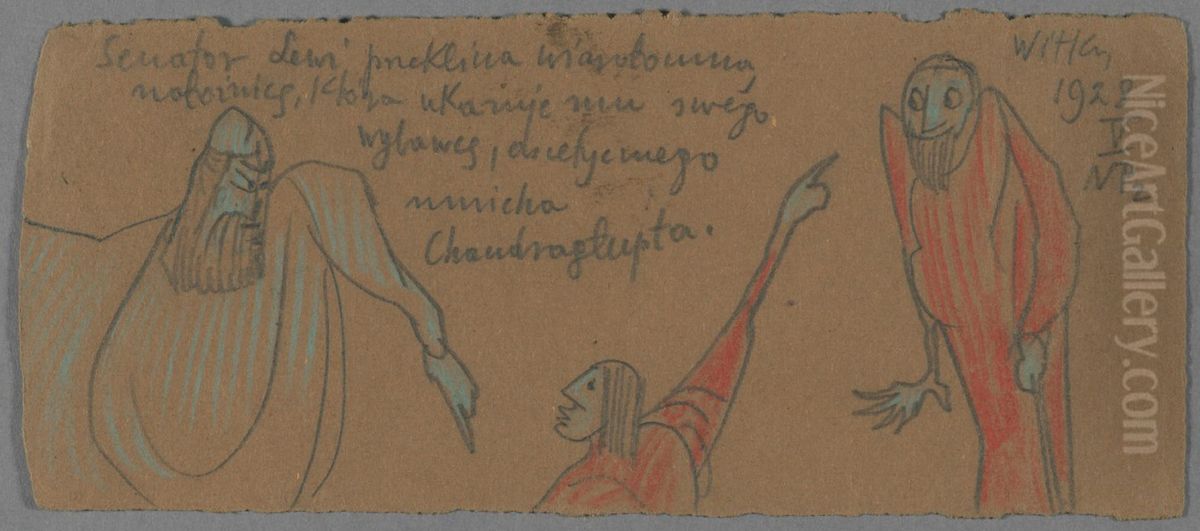 Senator Lewi przeklina wiarołomną
nałożnicę, która ukazuje mu swego
wybawcę, ascetycznego
mnicha
Chandragłupta.
Witkacy
192
NiceArtGallery.com